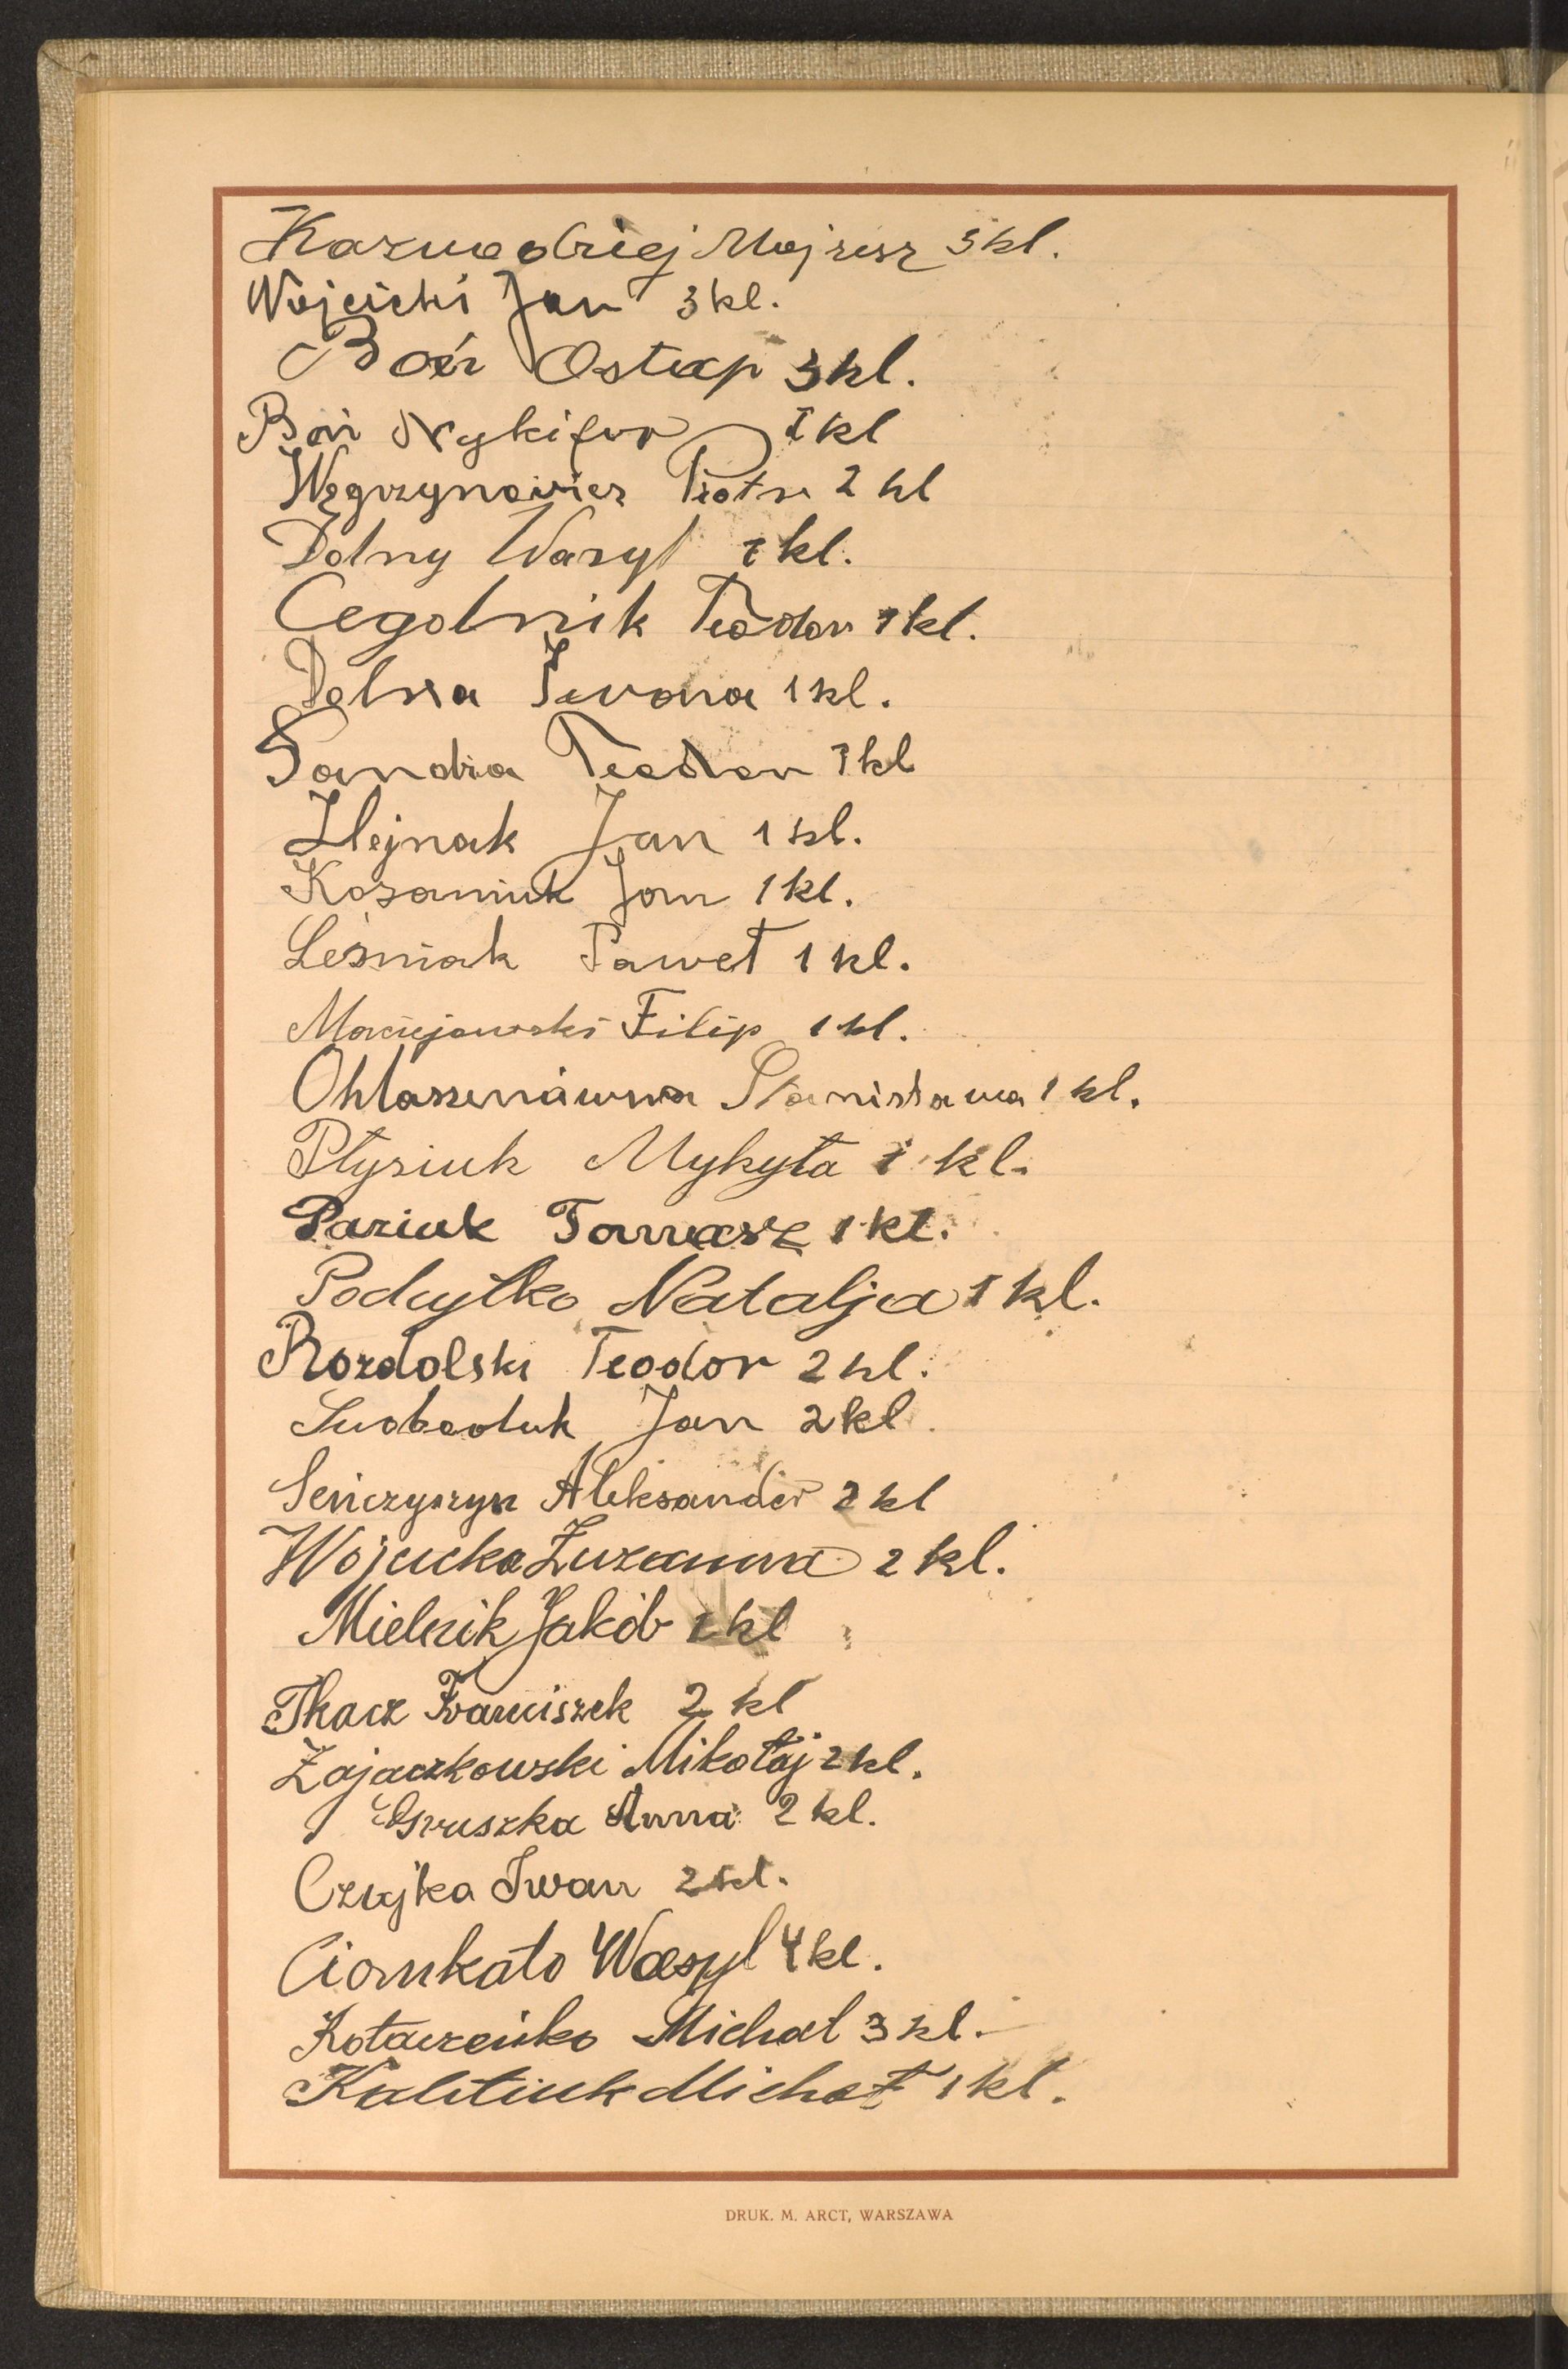 Kaznodziej Mojżesz 3 kl.
Wojcicki Jan 3 kl.
Boń Ostap 3 kl.
Boń Nykifor 1 kl
Węgrzynowicz Piotr 2 kl
Dolny Wasyl 1 kl.
Cegolnik Teodor 1 kl.
Dolna Iwona 1 kl.
Teodor 1 kl
Zlejnak Jan 1 kl.
Kozaniuk Jan 1 kl.
Leśniak Paweł 1 kl.
Maciejowski Filip 1 kl.
Stanisława 1 kl.
Ptysiuk Mykyta 1 kl.
Paziuk Tomasz 1 kl.
Natalja 1 kl.
Rozdolski Teodor 2 kl.
Swoboduk Jan 2 kl.
Seńczyszyn Aleksander 2 kl
Wójcicka Zuzanna 2 kl.
Mielnik Jakób 2 kl
Tkacz Franciszek 2 kl
Zajaczkowski Mikołaj 2 kl.
Gruszka Anna 2 kl.
Czujka Iwan 2 kl.
Ciomkało Wasyl 4 kl.
Kołaczeńko Michał 3 kl.
Kalitiuk Michał 1 kl.
DRUK. M. ARCT, WARSZAWA